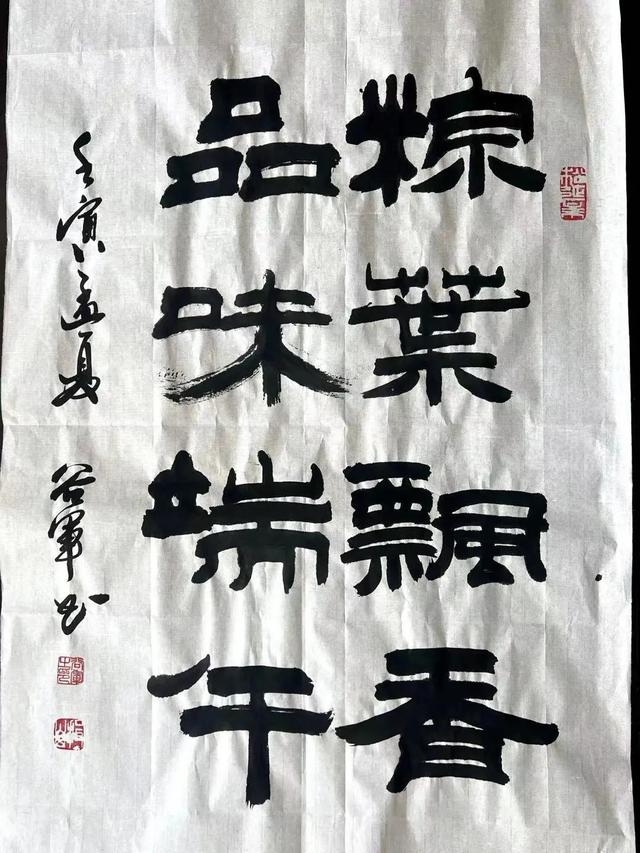 粽葉飄香
品味端午
壬寅孟夏 谷軍书